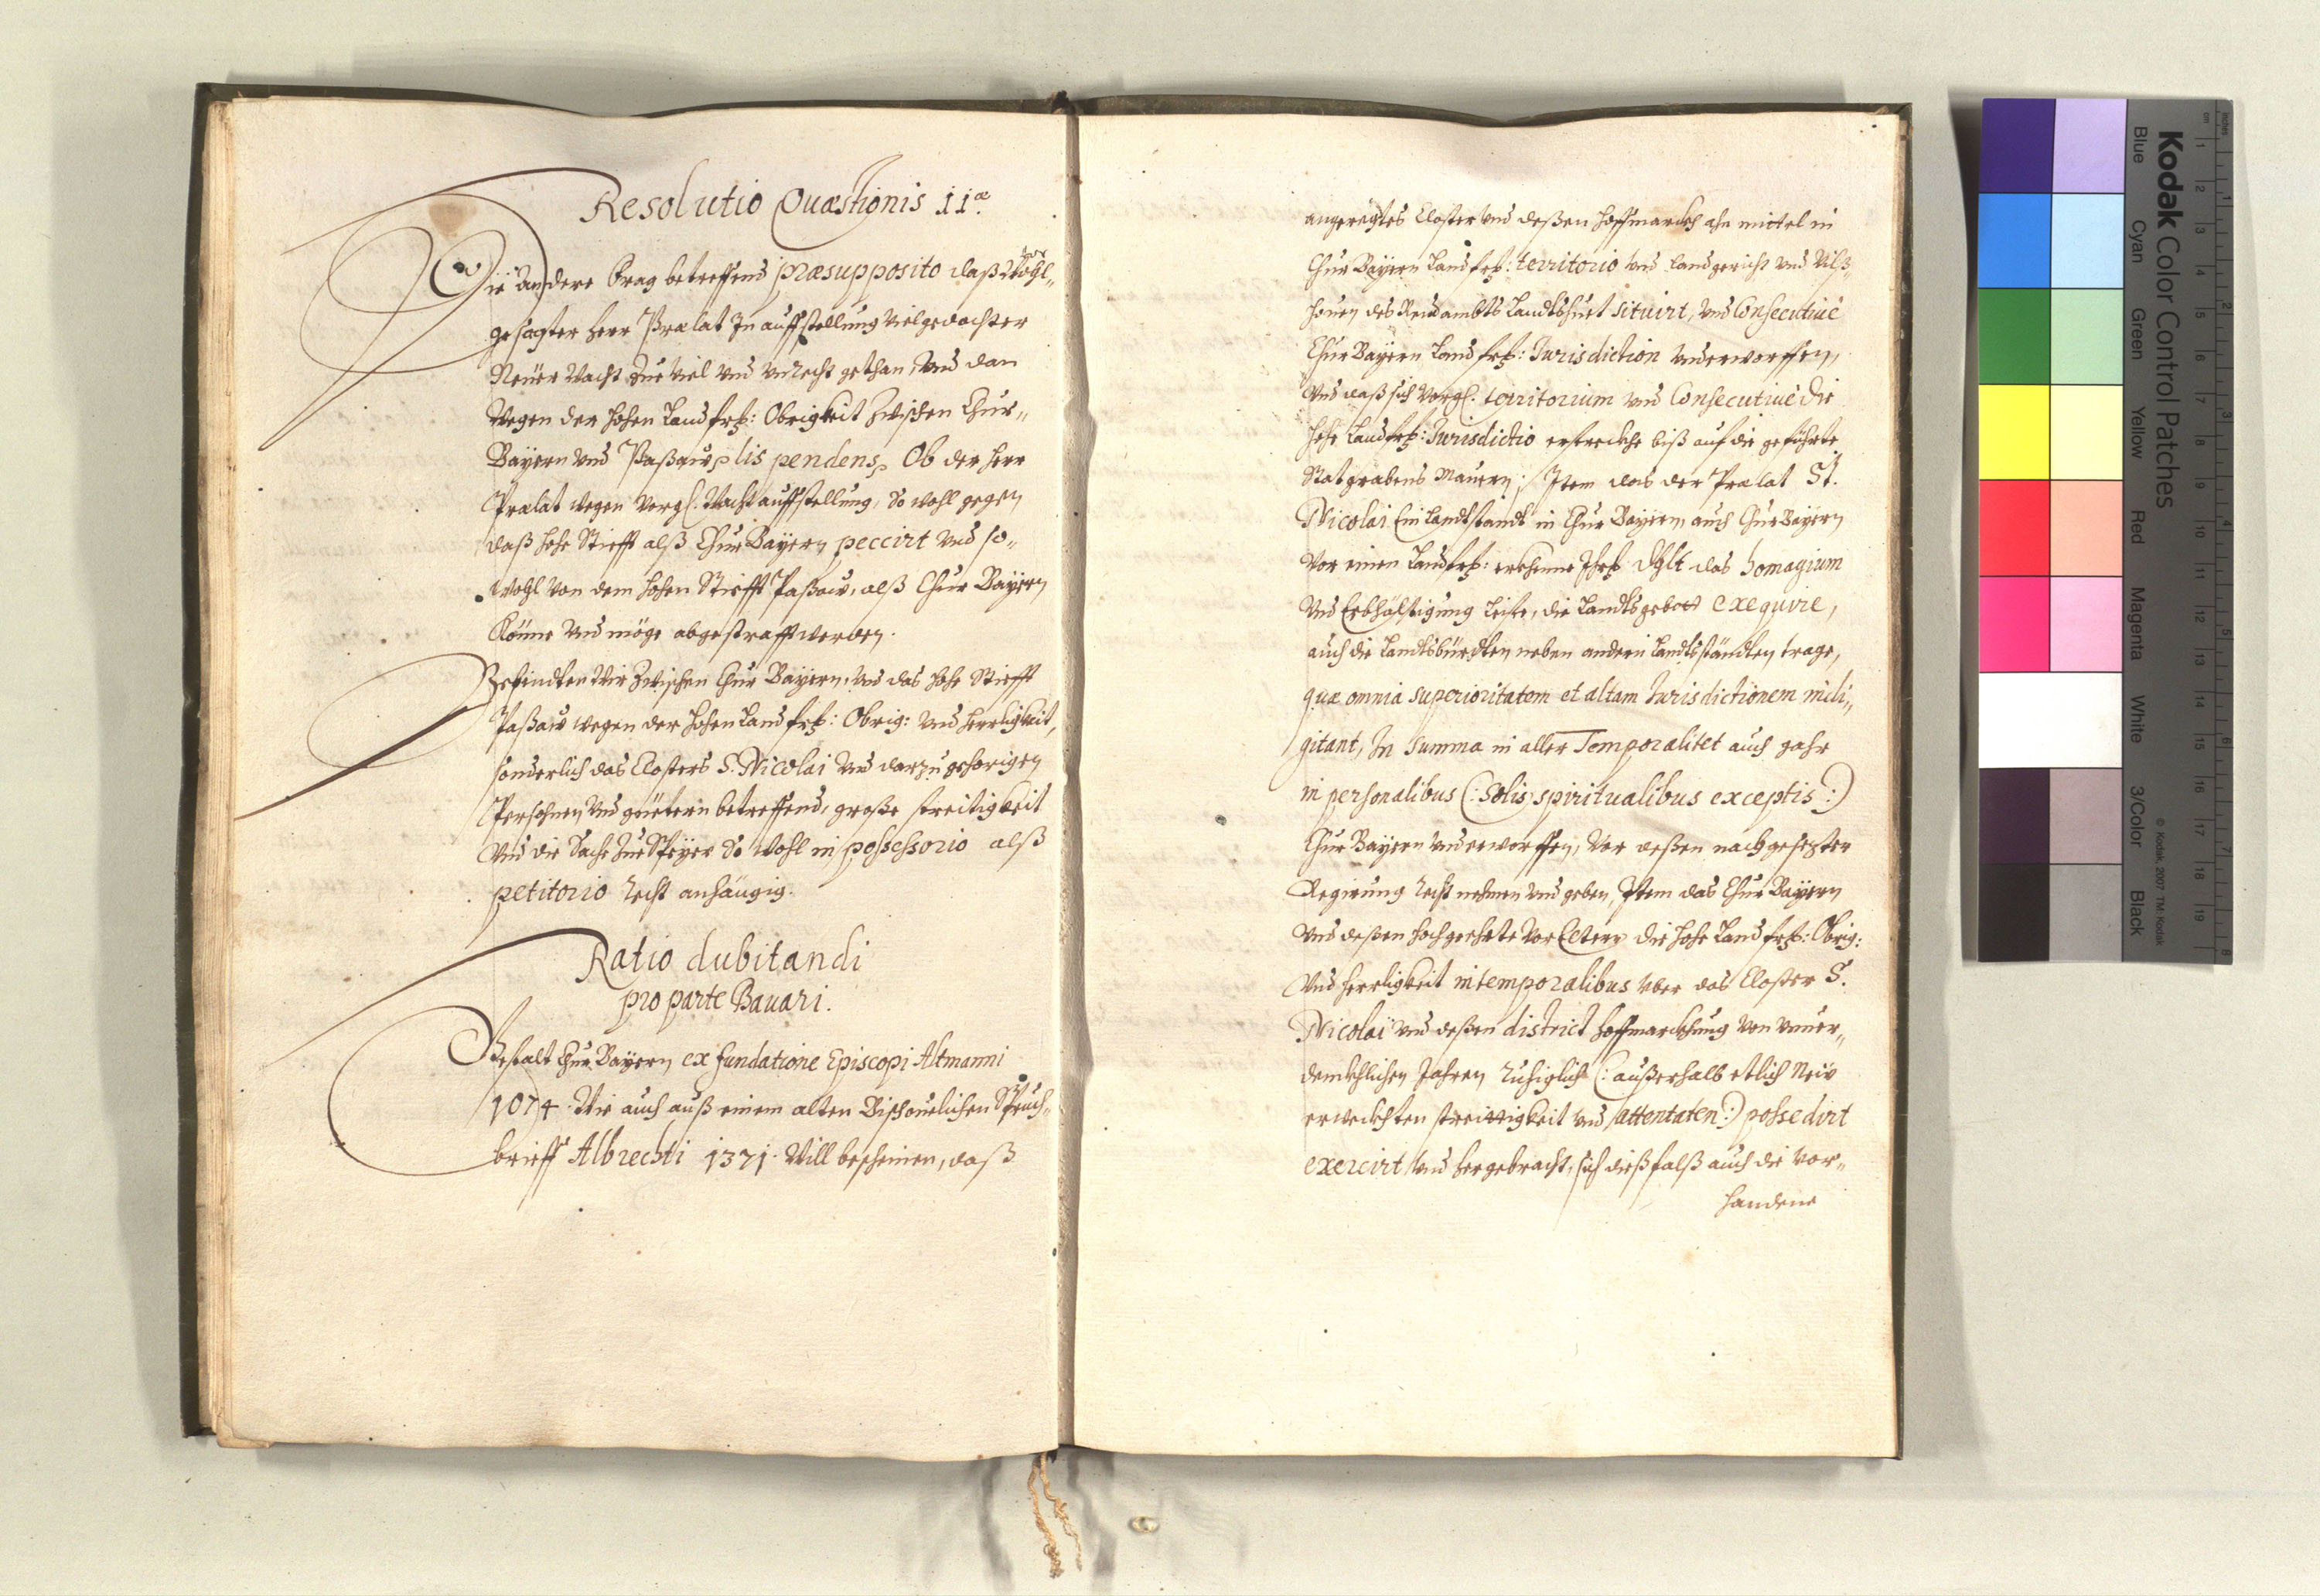 Resolutio Quæstionis 11æ.
Die Andere Frag betreffend præsupposito daß Wohl„
gesagter Herr Prælat In auffstellung vielgedachter
Neüer Wacht Zue viel und unrecht gethan, Und dan
Wegen der hohen Landsfrstl: Obrigkeit Zwischen Chur„
Bayern und Paßaw lis pendens, Ob der Herr
Prælat wegen Vorgl. Wacht auffstellung, So wohl gegen
daß hohe Stifft alß Chur Bayern peccirt und so„
Wohl von dem hohen Stifft Paßaw, alß Chur Bayern
Könne Und möge abgestrafft werden.
Befindten Wir Zwischen Chur Bayern, Und das hohe Stifft
Paßaw wegen der hohen Landsfrstl: Obrig: und Herrligkeit,
sonderlich das Closters S. Nicolai Und darzu gehorigen
Persohnen Und güetern betreffend, große streitigkeit
Und die Sache Zue Speyer So Wohl in possessorio alß
petitorio recht anhängig.
Ratio dubitandi
pro parte Bauari.
Gestalt Chur Bayern ex fundatione Episcopi Altmanni
1074. Wie auch auß einem alten Bischouelichen Spruch„
brieff Albrechti 1371. Will bescheinen, daß
angeregtes Closter Und deßen Hoffmarckh ohn mittel in
Chur Bayern Landsfrstl: territorio und Landgericht Und Vilß„
houen des Rendambts Landtshuet situirt, Und Consecutiue
Chur Bayern Landsfrstl: Jurisdiction Underworffen,
Und daß sich Vorgl. territorium und Consecutiue die
hohe Landsfrstl: Jurisdictio erstreckhe biß auf die geführte
Statgrabens Mauern; Item das der Prælat St.
Nicolai Ein Landtstandt in Chur Bayern, auch Chur Bayern
Vor einen Landsfrstl: erkhenne Ihrstl Dhlt das homagium
Und Erbhültigung leiste, die Landtsgebott exequire,
auch die Landtsbürdten neben andern Landtsständten trage,
quæ omnia superioritatem et altam Jurisdictionem indi„
gitant, In Summa in aller Temporalitet auch gahr
in personalibus (: Solis spiritualibus exceptis :)
Chur Bayern Underworffen, Vor deßen nachgesezter
Regirung recht nehmen und geben, Item das Chur Bayern
Und deßen hochgeehrte Vor Eltern die hohe Landsfrstl: Obrig:
Und Herrligkeit in temporalibus über das Closter S.
Nicolai Und deßen district Hoffmarckhung von unuer„
dencklichen Jahren ruhiglich (: außerhalb etlich Neiv
erweckhten streittigkeit und attentaten :) possedirt
exercirt, Und hergebracht, sich dießfalß auch die Vor„
handene
Kodak Color Control Patches
Blue Cyan Green Yellow Red Magenta White 3/Color Black
© Kodak, 2007 TM: Kodak